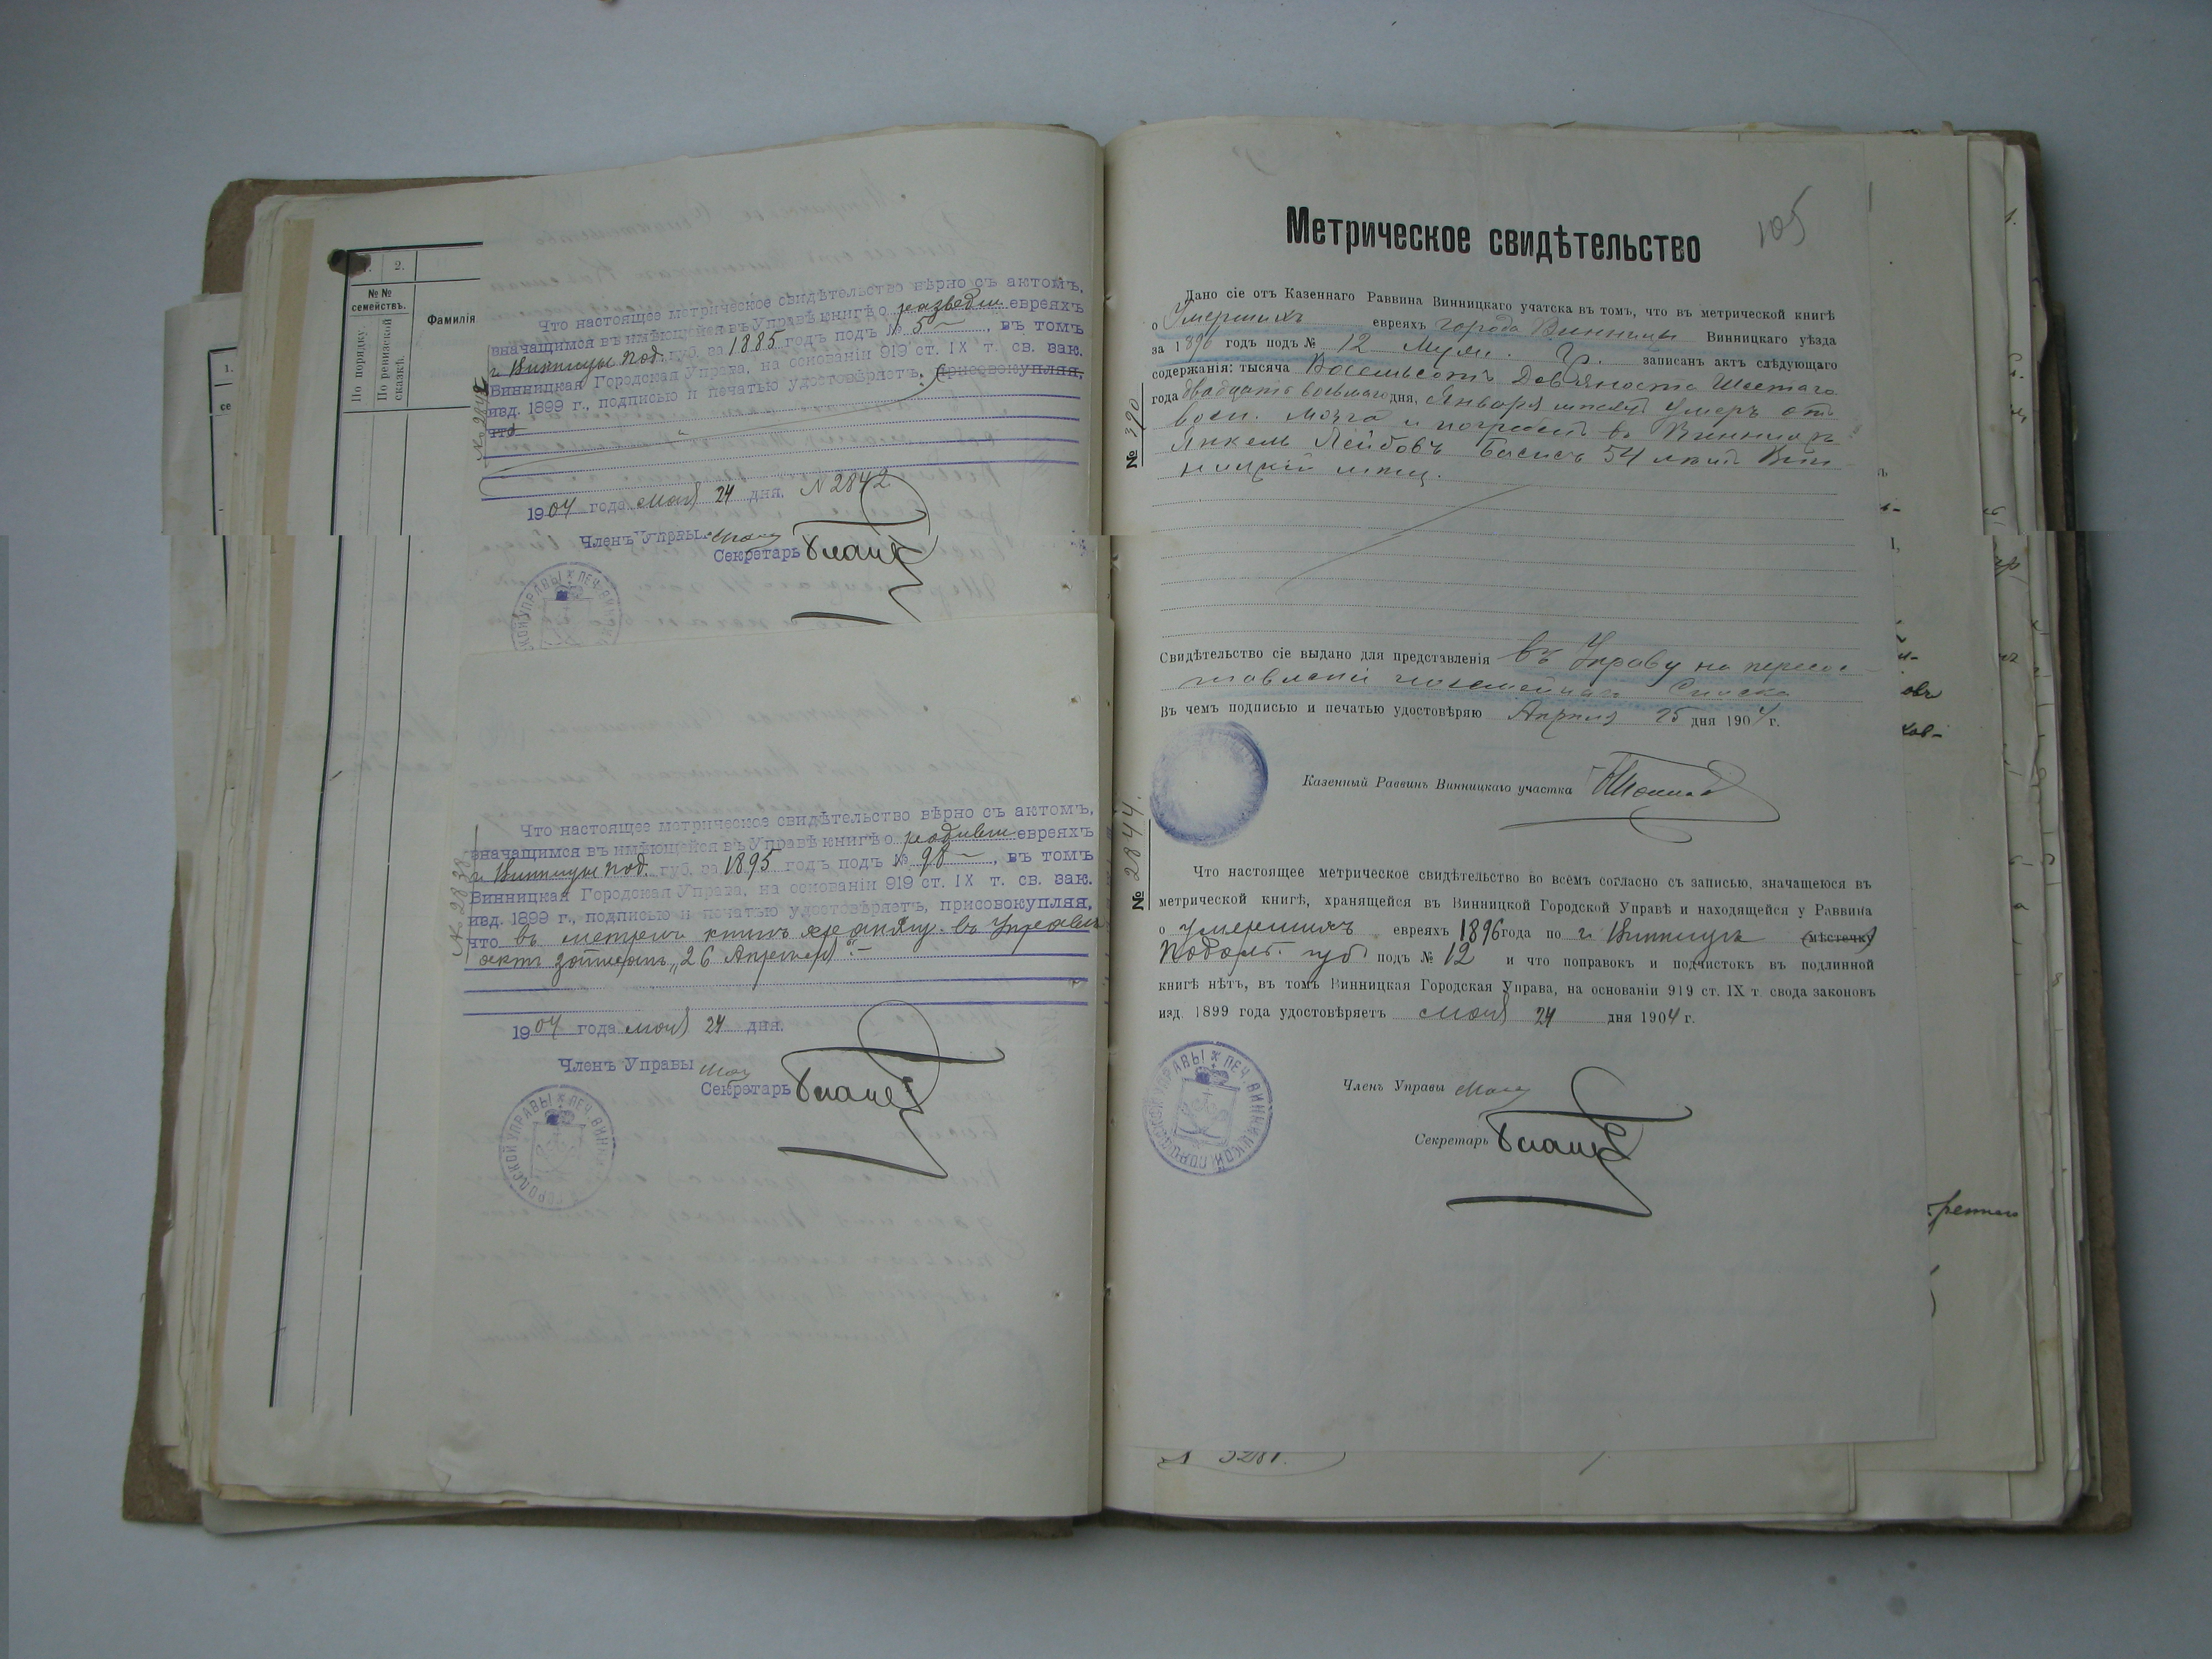 1.
2.
№№
семействъ.
Фамилія
По порядку.
По ревизской
сказкѣ.
1.
№ 2842
Что настоящее метрическое свидѣтельство вѣрно съ актомъ,
значащимся въ имѣющейся въ Управѣ книгѣ о разведш. евреяхъ
г. Винницы Под. губ. за 1885 годъ подъ № 5 —, въ томъ
Винницкая Городская Управа, на основаніи 919 ст. IX т. св. зак.
изд. 1899 г., подписью и печатью удостовѣряетъ, присовокупляя,
что
1904 года мая 24 дня. № 2842
Членъ Управы
Секретарь
№ 2838
Что настоящее метрическое свидѣтельство вѣрно съ актомъ,
значащимся въ имѣющейся въ Управѣ книгѣ о родивш. евреяхъ
г. Винницы Под. губ. за 1895 годъ подъ № 98 —, въ томъ
Винницкая Городская Управа, на основаніи 919 ст. IX т. св. зак.
изд. 1899 г., подписью и печатью удостовѣряетъ, присовокупляя,
что въ метрич. книгѣ въ Управѣ
актъ „26 Апрѣля". —
1904 года мая 24 дня.
Членъ Управы
Секретарь
ПЕЧ. ВИННИЦКОЙ ГОРОДСКОЙ УПРАВЫ
105
Метрическое свидѣтельство
Дано сіе отъ Казеннаго Раввина Винницкаго учатска въ томъ, что въ метрической книгѣ
о Умершихъ евреяхъ города Винницы Винницкаго уѣзда
за 1896 годъ подъ № 12 Муж. Гр. записанъ актъ слѣдующаго
содержанія: тысяча Восемьсотъ Девяносто Шестаго
года двадцать восьмаго дня, Января мѣсяца Умеръ отъ
восп. мозга и погребенъ въ Винницѣ
Янкель Лейбовъ Басисъ 54 лѣтъ Вин-
ницкій мѣщ.
№ 390
Свидѣтельство сіе выдано для представленія въ Управу на пересос-
тавленіе посемейнаго Списка
Въ чемъ подписью и печатью удостовѣряю Апрѣля 25 дня 1904 г.
Казенный Раввинъ Винницкаго участка
№ 2844.
Что настоящее метрическое свидѣтельство во всемъ согласно съ записью, значащеюся въ
метрической книгѣ, хранящейся въ Винницкой Городской Управѣ и находящейся у Раввина
о умершихъ евреяхъ 1896 года по г. Винницѣ (мѣстечку)
Подольск. губ. подъ № 12 и что поправокъ и подчистокъ въ подлинной
книгѣ нѣтъ, въ томъ Винницкая Городская Управа, на основаніи 919 ст. IX т. свода законовъ
изд. 1899 года удостовѣряетъ мая 24 дня 1904 г.
Членъ Управы
Секретарь
ПЕЧ. ВИННИЦКОЙ ГОРОДСКОЙ УПРАВЫ